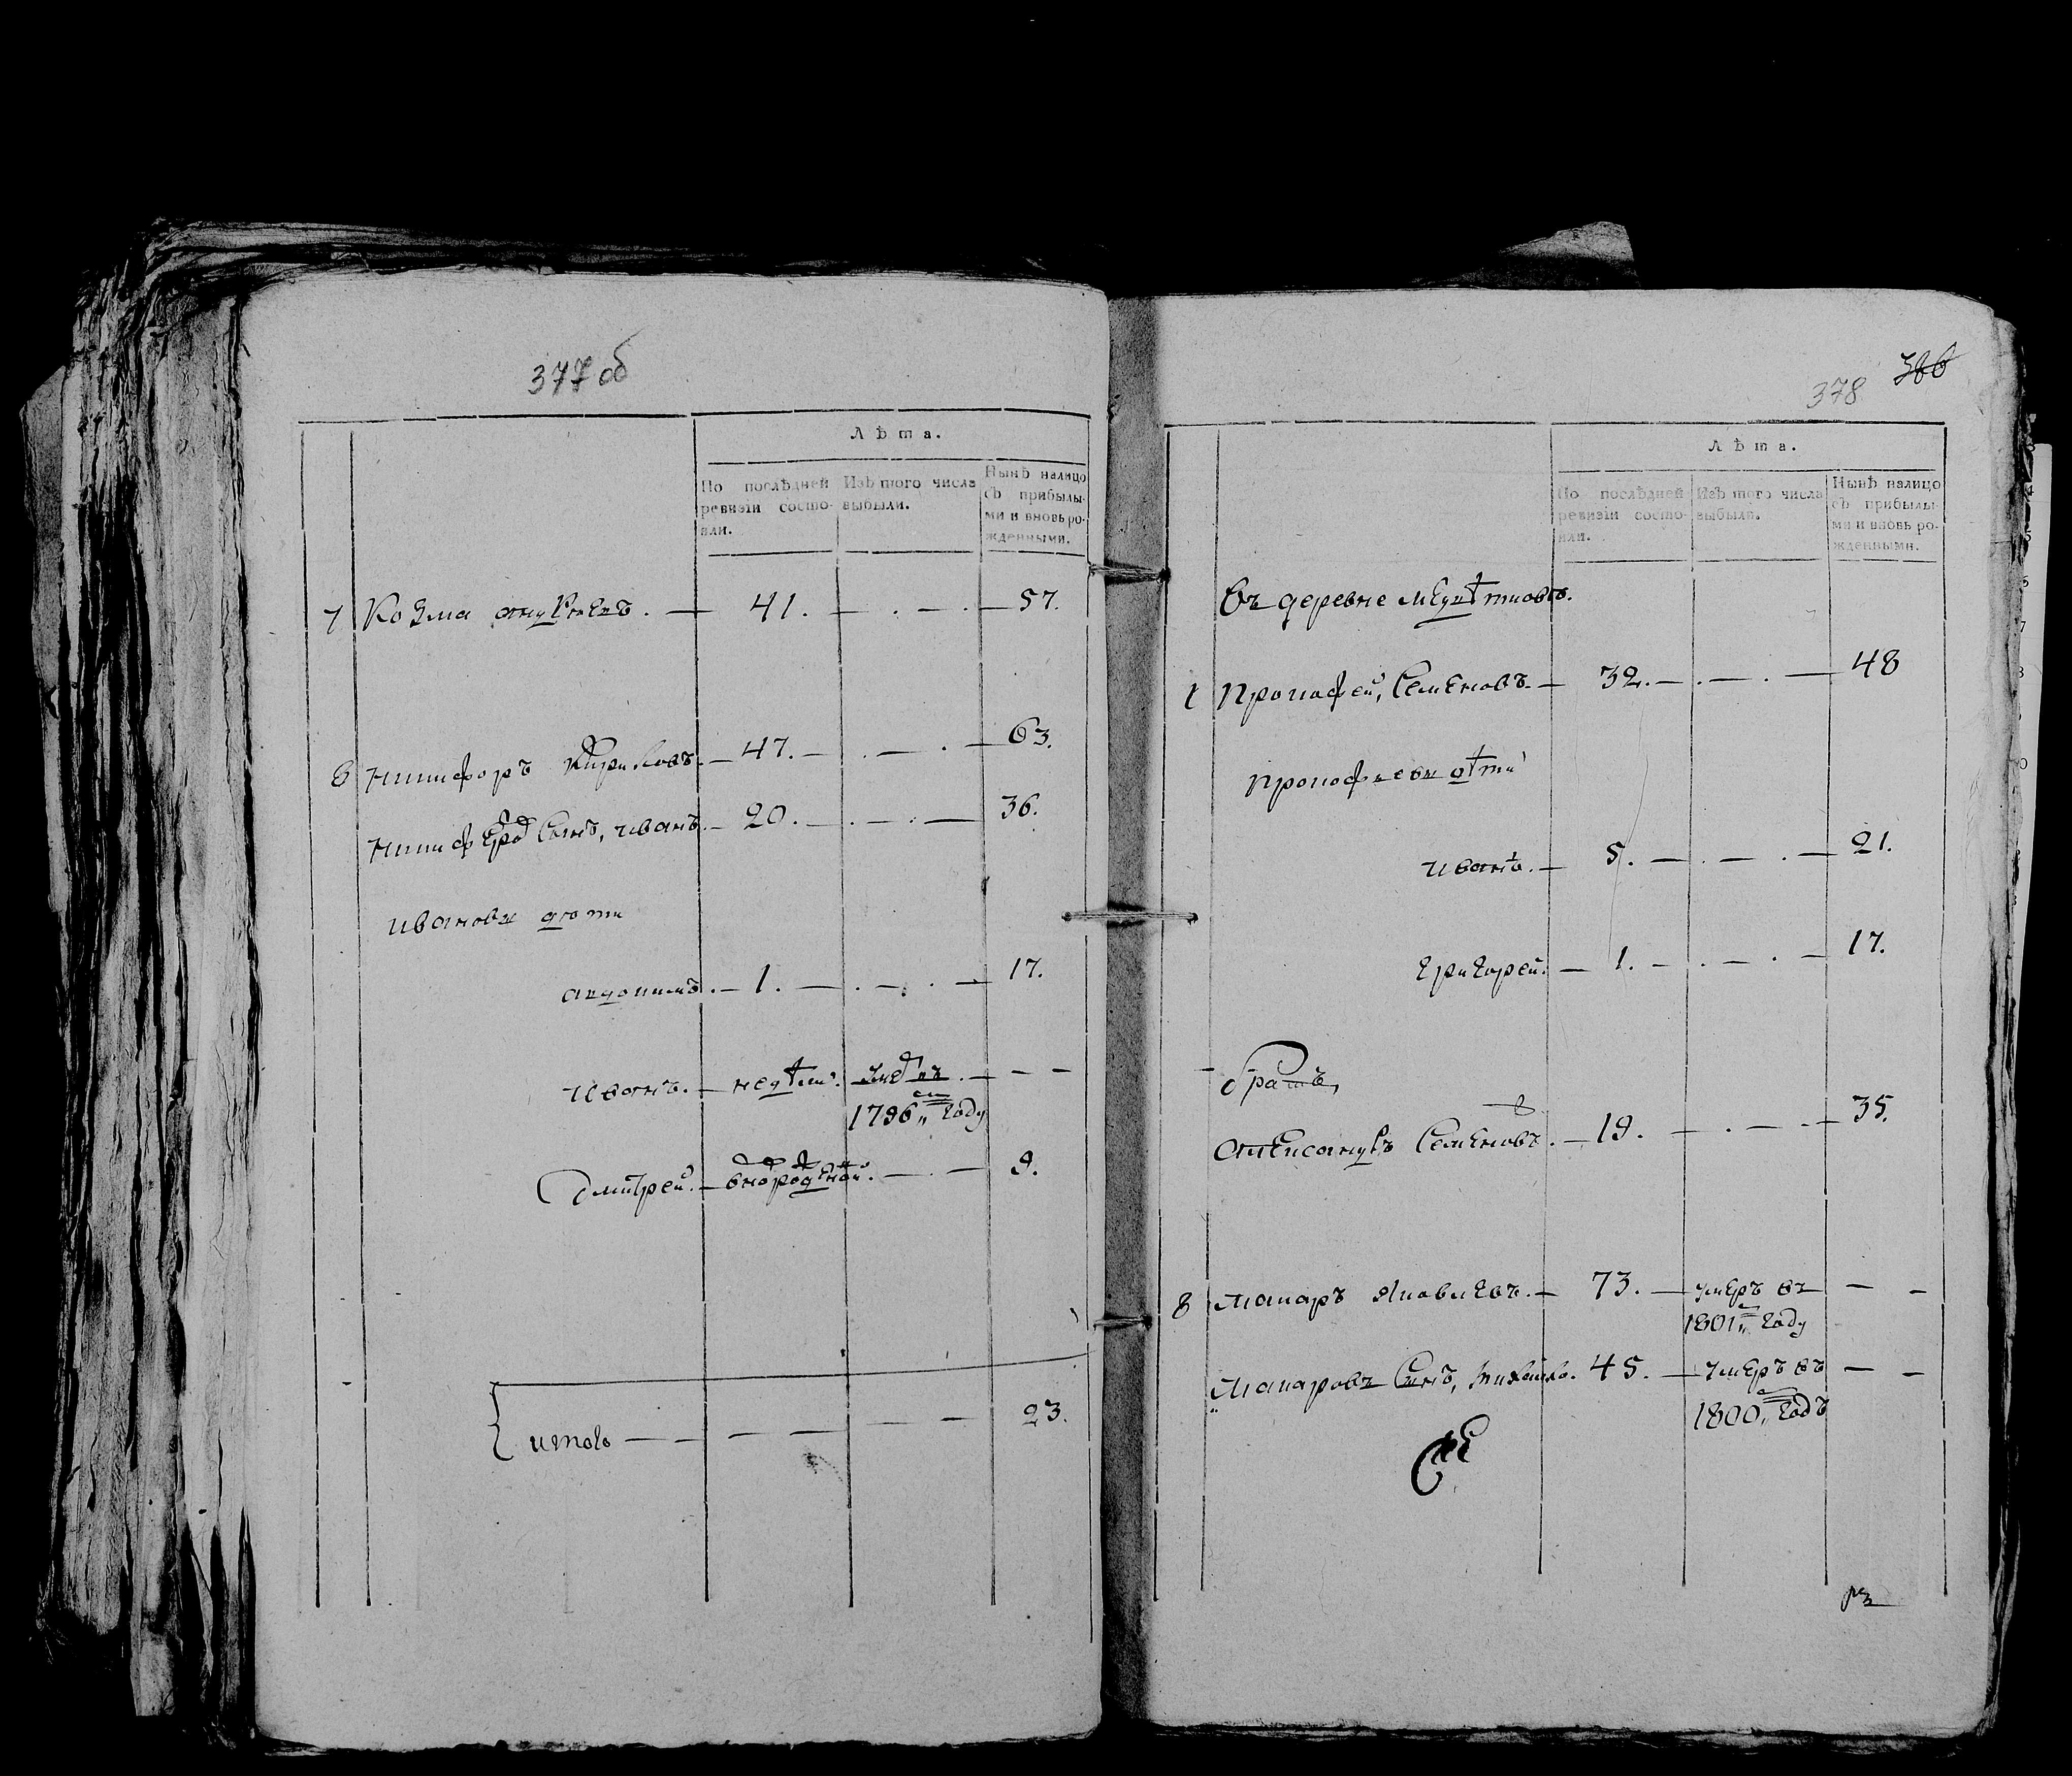 377 об
Лѣта.
По послѣдней ревизіи состояли.
Изъ того числа выбыли.
Нынѣ налицо съ прибылыми и вновь рожденными.
7 Козма андреевъ. — 41. — . — . — 57.
8 Никифоръ Кириловъ. — 47. — . — . — 63.
Никифоровъ Сынъ, иванъ. — 20. — . — . — 36.
ивановы дѣти
авдокимъ. — 1. — . — . — 17.
иванъ. — недѣли. умеръ въ — — —
1796„ году
Дмитрей. — вновьрожденной. — . — 9.
итого — — — — — — 23.
378 366
Лѣта.
По послѣдней ревизіи состояли.
Изъ того числа выбыли.
Нынѣ налицо съ прибылыми и вновь рожденными.
Въ деревне
1 Прокофей, Семеновъ. — 32. — . — . — 48
Прокофьевы дѣти
иванъ. — 5. — . — . — 21.
григорей. — 1. — . — . — 17.
братъ,
Александръ Семеновъ. — 19. — . — . — 35.
8 Макаръ Яковлевъ. — 73. — умеръ въ — —
1801„ году
Макаровъ Сынъ, михайло. 45. — умеръ въ — —
1800„ годъ